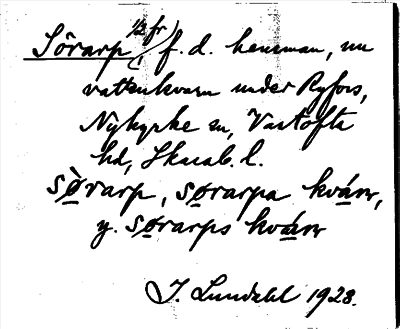 1/3 fr
Sörarp, f. d. hemman, nu
vattenkvarn under Ryfors,
Nykyrke sn, Vartofta
hd, Skarab. l.
sørarp, sørarpa kvárn,
y. sørarps kvárn
J. Lundahl 1928.